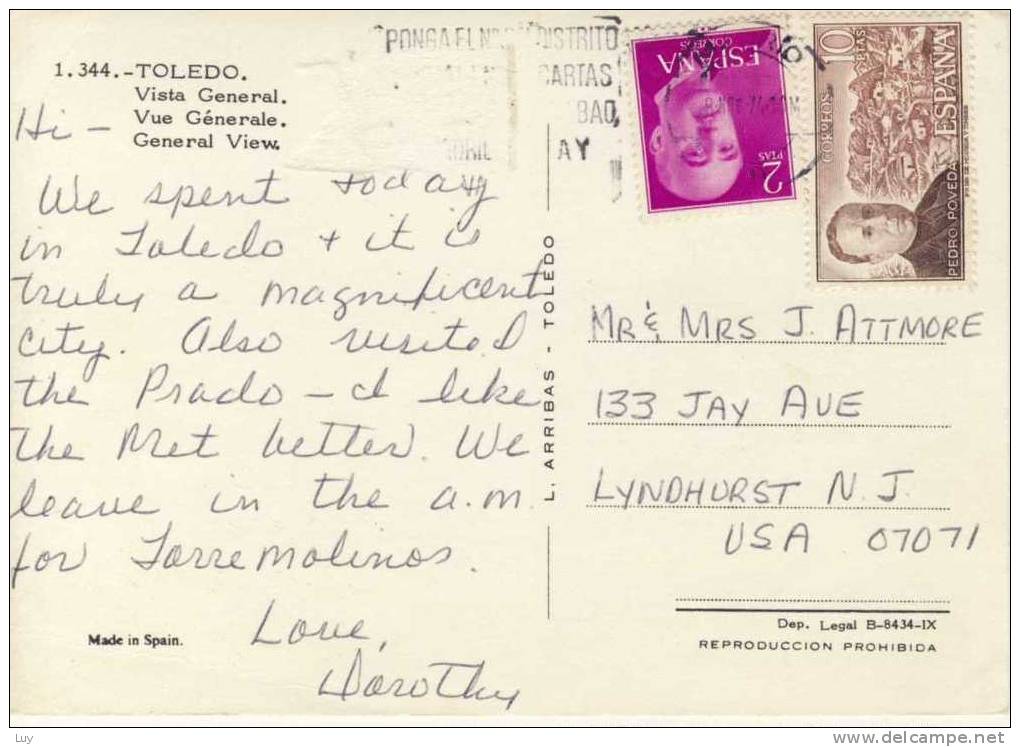 1.344.-TOLEDO.
Vista General.
Vue Génerale.
General View.
Hi -
We spent today
in Toledo + it is
truly a magnificent
city. Also visited
the Prado - I like
the Met better. We
leave in the a.m.
for Torremolinos.
Love,
Dorothy
Made in Spain.
L. ARRIBAS - TOLEDO
PONGA EL DISTRITO
CARTAS
ESPAÑA
CORREOS
2
PTAS
10
PTAS
CORREOS
ESPAÑA
PEDRO POVEDA
MR & MRS J. ATTMORE
133 JAY AVE
LYNDHURST N.J.
USA 07071
Dep. Legal B-8434-IX
REPRODUCCION PROHIBIDA
Luy
http://www.delcampe.net